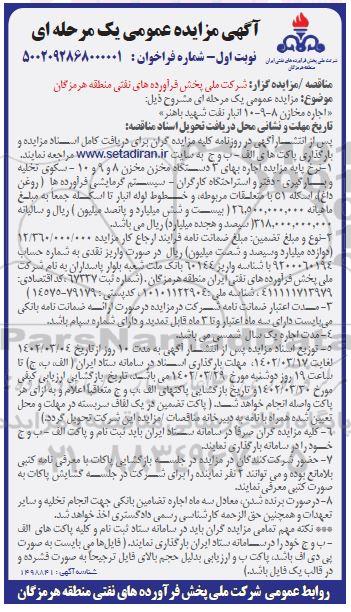 آگهی مزایده عمومی یک مرحله ای
نوبت اول- شماره فراخوان : ۵۰۰۲۰۹۲۸۶۸۰۰۰۰۰۱
شرکت ملی پخش فرآورده های نفتی ایران
منطقه هرمزگان
مناقصه /مزایده گزار: شرکت ملی پخش فرآورده های نفتی منطقه هرمزگان
موضوع: مزایده عمومی یک مرحله ای مشروح ذیل:
«اجاره مخازن ۸-۹-۱۰ انبار نفت شهید باهنر»
تاریخ مهلت و نشانی محل دریافت تحویل اسناد مناقصه:
پس از انتشار آگهی در روزنامه کلیه مزایده گران برای دریافت کامل اسناد مزایده و
بارگذاری پاکت ها ی الف - ب و ج به سایت www.setadiran.ir مراجعه نمایند.
۱-نرخ پایه مزایده اجاره بهای ۳ دستگاه مخزن مخزن ۸ و ۹ و ۱۰ - سکوی تخلیه
و بارگیری - دفتر و استراحتگاه کارگران - سیستم گرمایشی فرآورده ها (روغن
داغ)، اسکله ۵۱ با متعلقات مربوطه، و خطوط لوله انبار تا اسکله جمعا به مبلغ
ماهیانه ۲۶,۵۰۰,۰۰۰,۰۰۰ (بیست و شش میلیارد و پانصد میلیون) ریال و سالیانه
۳۱۸,۰۰۰,۰۰۰,۰۰۰ (سیصد و هجده میلیارد) ریال می باشد.
۲-نوع و مبلغ تضمین: مبلغ ضمانت نامه فرآیند ارجاع کار مزایده ۱۲/۳۶۰/۰۰۰/۰۰۰
(دوازده میلیارد وسیصد و شصت میلیون) ریال در صورت واریز نقدی به شماره حساب
بانک ملت شعبه بلوار پاسداران به نام شرکت
ملی پخش فرآورده های نفتی ایران منطقه هرمزگان.
۳-مدت اعتبار ضمانت نامه شرکت در مزایده درصورت ارائه ضمانت نامه بانکی
می بایست دارای سه ماه اعتبار و تا ۳ ماه قابل تمدید و دارای شماره سپام باشد.
۴-مدت اجاره یک سال شمسی می باشد.
۵- توزیع اسناد مزایده پس از انتشار آگهی به مدت ۱۰ روز از تاریخ ۱۴۰۲/۰۳/۰۴
لغایت ۱۴۰۲/۰۳/۱۷، مهلت بارگذاری اسناد در سامانه ستاد ایران (الف، ب، ج) تا
ساعت ۱۹ روز دوشنبه مورخ ۱۴۰۲/۰۳/۲۹ می باشد، تاریخ بازگشایی ارزیابی کیفی
مورخ ۱۴۰۲/۰۳/۳۰ و تاریخ بازگشایی پاکتهای الف، ب و ج متعاقباً اعلام و به ازای هر
پاکت واصله انجام خواهد شد. (پاکت تضمین در یک لفاف سربسته در مهلت و محل
تعیین شده همراه با نامه به دبیرخانه مناقصات /مزایده این شرکت تحویل گردد.)
۶- کلیه مزایده گران صرفا در سامانه ستاد ایران باید ثبت نام و پاکت الف - ب و ج
خود را در سامانه بارگذاری نمایند.
۷- حضور شرکت کنندگان در مزایده در جلسه بازگشایی پاکات با معرفی نامه کتبی
بلامانع بوده و می توانند ۲ نفر نماینده را برای شرکت در جلسه گشایش پاکات به
صورت کتبی معرفی نمایند.
۸-در صورت برنده شدن، معادل سه ماه اجاره تضامین بانکی جهت انجام تخلیه و سایر
تعهدات و همچنین حق الزحمه کارشناسی رسمی دادگستری اخذ خواهد شد.
*** نکته مهم تمامی مزایده گران باید در سامانه ستاد ثبت نام و کلیه پاکت های الف
- ب و ج خود را در سامانه ستاد ایران بارگذاری نمایند. (فایل ها می بایست به صورت
پی دی اف باشد، پاکت ب و ارزیابی بدلیل حجم بالای فایل ترجیحاً به صورت فشرده و
در قالب یک فایل باشد.)
شناسه آگهی : ۱۴۹۸۸۴۱
روابط عمومی شرکت ملی پخش فرآورده های نفتی منطقه هرمزگان